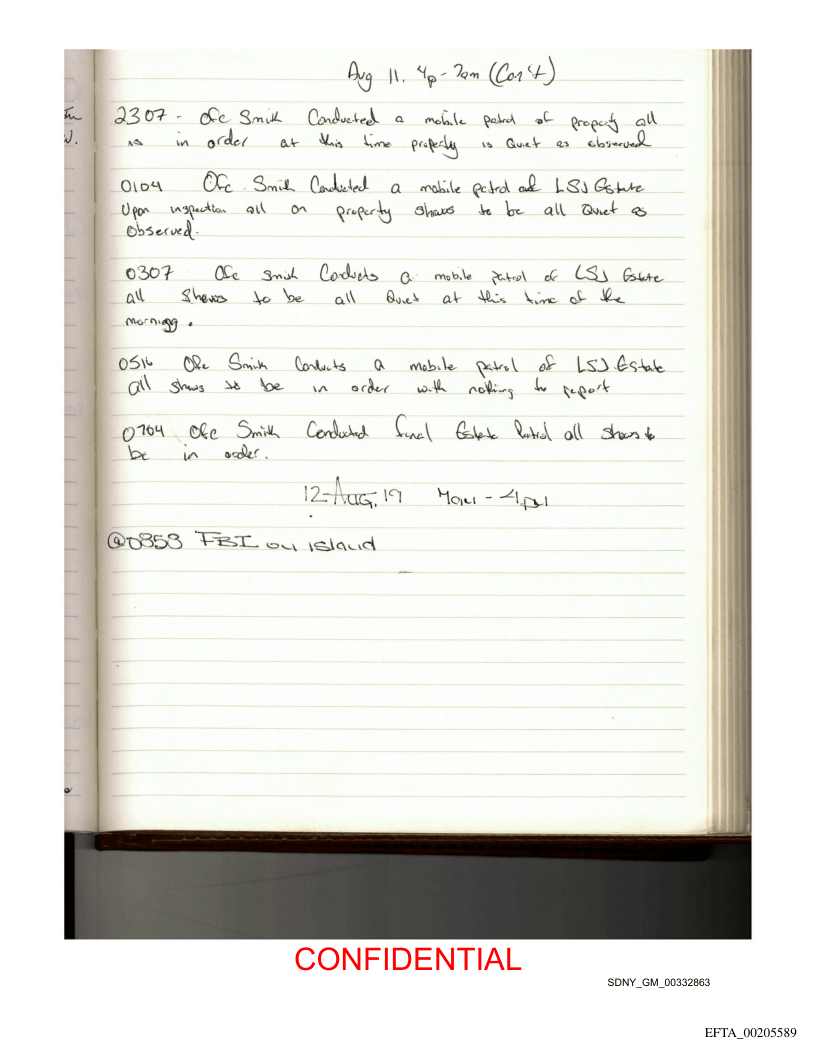 Aug 11. 4p - 7am (Con't)
2307 - Ofc Smith Conducted a mobile patrol of property all
is in order at this time property is Quiet as observed
0104 Ofc. Smith Conducted a mobile patrol of LSJ Estate
Upon inspection all on property shows to be all Quiet as
Observed.
0307 Ofc Smith Conducts a mobile patrol of LSJ Estate
all Shows to be all Quiet at this time of the
morning.
0516 Ofc Smith Conducts a mobile patrol of LSJ Estate
all shows to be in order with nothing to report
0704 Ofc Smith Conducted final Estate Patrol all shows to
be in order.
12-AUG, 19 - 4pm
@0858 FBI on island
CONFIDENTIAL
SDNY_GM_00332863
EFTA_00205589